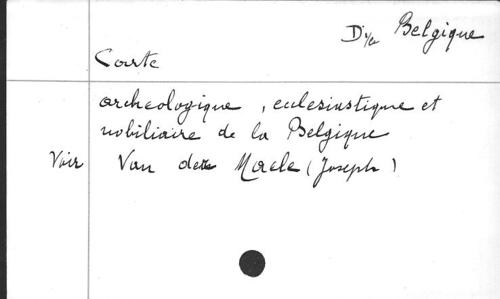 D 1/2 Belgique
Carte
archeologique, ecclesiastique et
nobiliaire de la Belgique
Voir Van der Maele (Joseph)